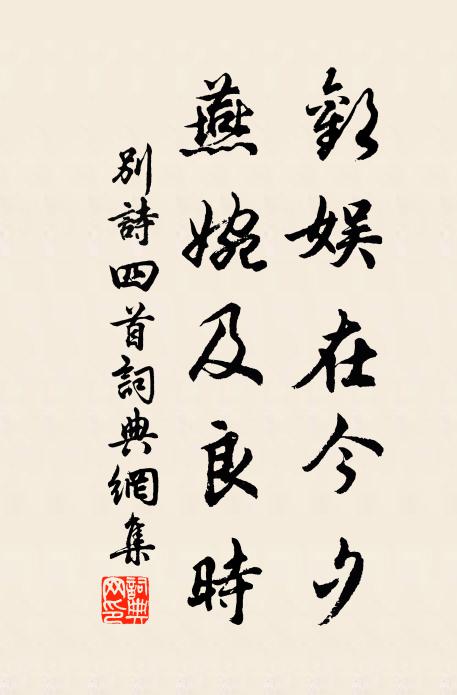 歡娱在今夕
燕婉及良時
别詩四首詞典網集
詞典網印